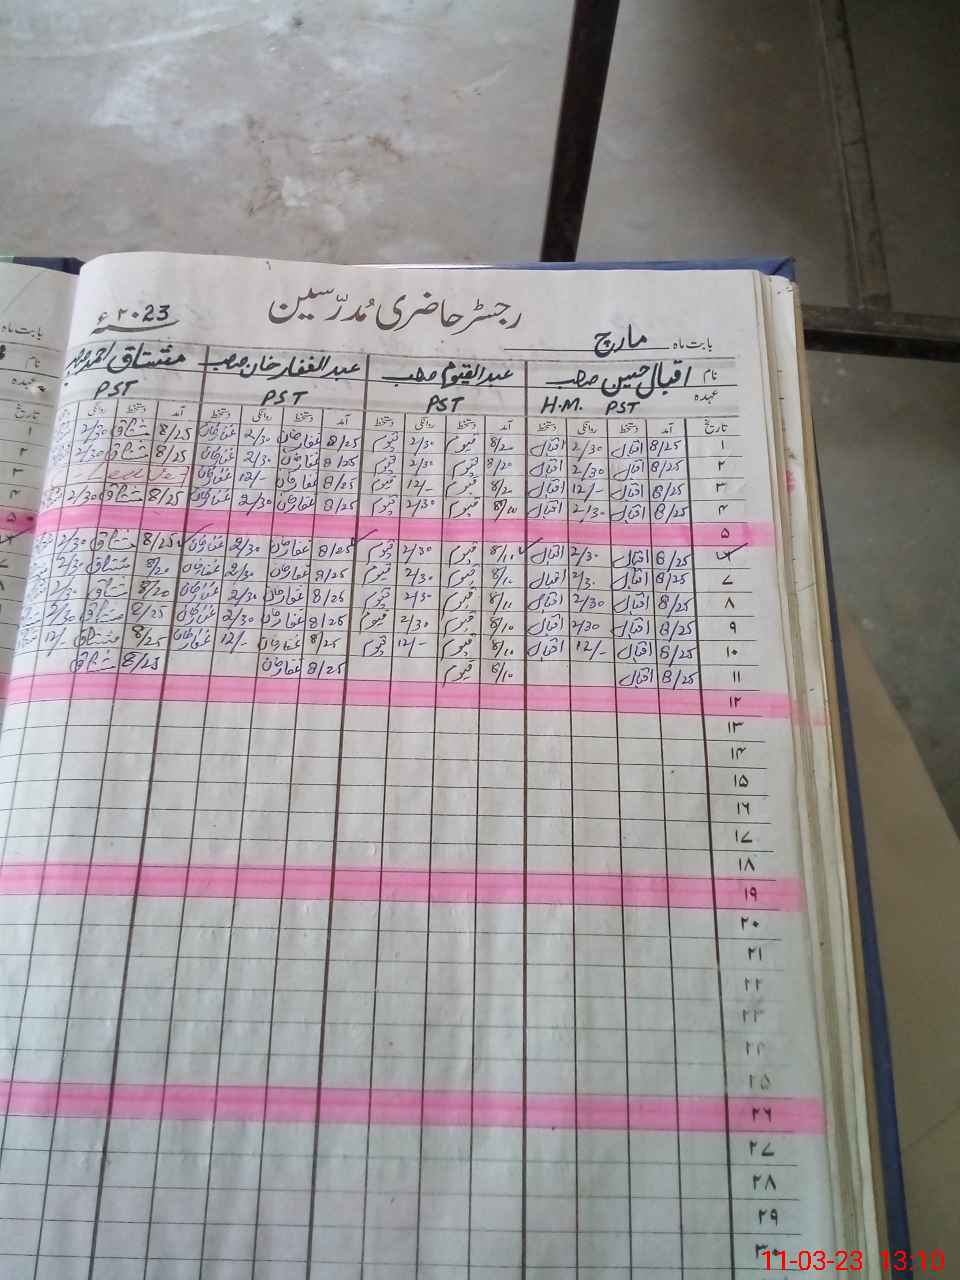 رجسٹر حاضری مُدرّسین
بابت ماہ مارچ ۲۰23ء
نام اقبال حسین صاحب عبدالقیوم صاحب عبدالغفار خان صاحب مشتاق احمد
عہدہ H.M. PST PST PST PST
تاریخ آمد دستخط روانگی دستخط آمد دستخط روانگی دستخط آمد دستخط روانگی دستخط آمد دستخط روانگی
۱ 8/25 اقبال 2/30 اقبال 8/20 قیوم 2/30 قیوم 8/25 غفار خان 2/30 غفار خان 8/25 مشتاق 2/30
۲ 8/25 اقبال 2/30 اقبال 8/20 قیوم 2/30 قیوم 8/25 غفار خان 2/30 غفار خان 8/25 مشتاق 2/30
۳ 8/25 اقبال 12/- اقبال 8/20 قیوم 12/- قیوم 8/25 غفار خان 12/- غفار خان
۴ 8/25 اقبال 2/30 اقبال 8/10 قیوم 2/30 قیوم 8/25 غفار خان 2/30 غفار خان 8/25 مشتاق 2/30
۵
۶ 8/25 اقبال 2/30 اقبال 8/10 قیوم 2/30 قیوم 8/25 غفار خان 2/30 غفار خان 8/25 مشتاق 2/30
۷ 8/25 اقبال 2/30 اقبال 8/10 قیوم 2/30 قیوم 8/25 غفار خان 2/30 غفار خان 8/20 مشتاق 2/30
۸ 8/25 اقبال 2/30 اقبال 8/11 قیوم 2/30 قیوم 8/25 غفار خان 2/30 غفار خان 8/20 مشتاق 2/30
۹ 8/25 اقبال 2/30 اقبال 8/10 قیوم 2/30 قیوم 8/25 غفار خان 2/30 غفار خان 8/25 مشتاق 2/30
۱۰ 8/25 اقبال 12/- اقبال 8/11 قیوم 12/- قیوم 8/25 غفار خان 12/- غفار خان 8/25 مشتاق 12/-
۱۱ 8/25 اقبال 8/10 قیوم 8/25 غفار خان 8/25 مشتاق
۱۲
۱۳
۱۴
۱۵
۱۶
۱۷
۱۸
۱۹
۲۰
۲۱
۲۲
۲۳
۲۴
۲۵
۲۶
۲۷
۲۸
۲۹
۳۰
بابت ماہ
نام
عہدہ
تاریخ
۱
۲
۳
۴
۵
11-03-23 13:10